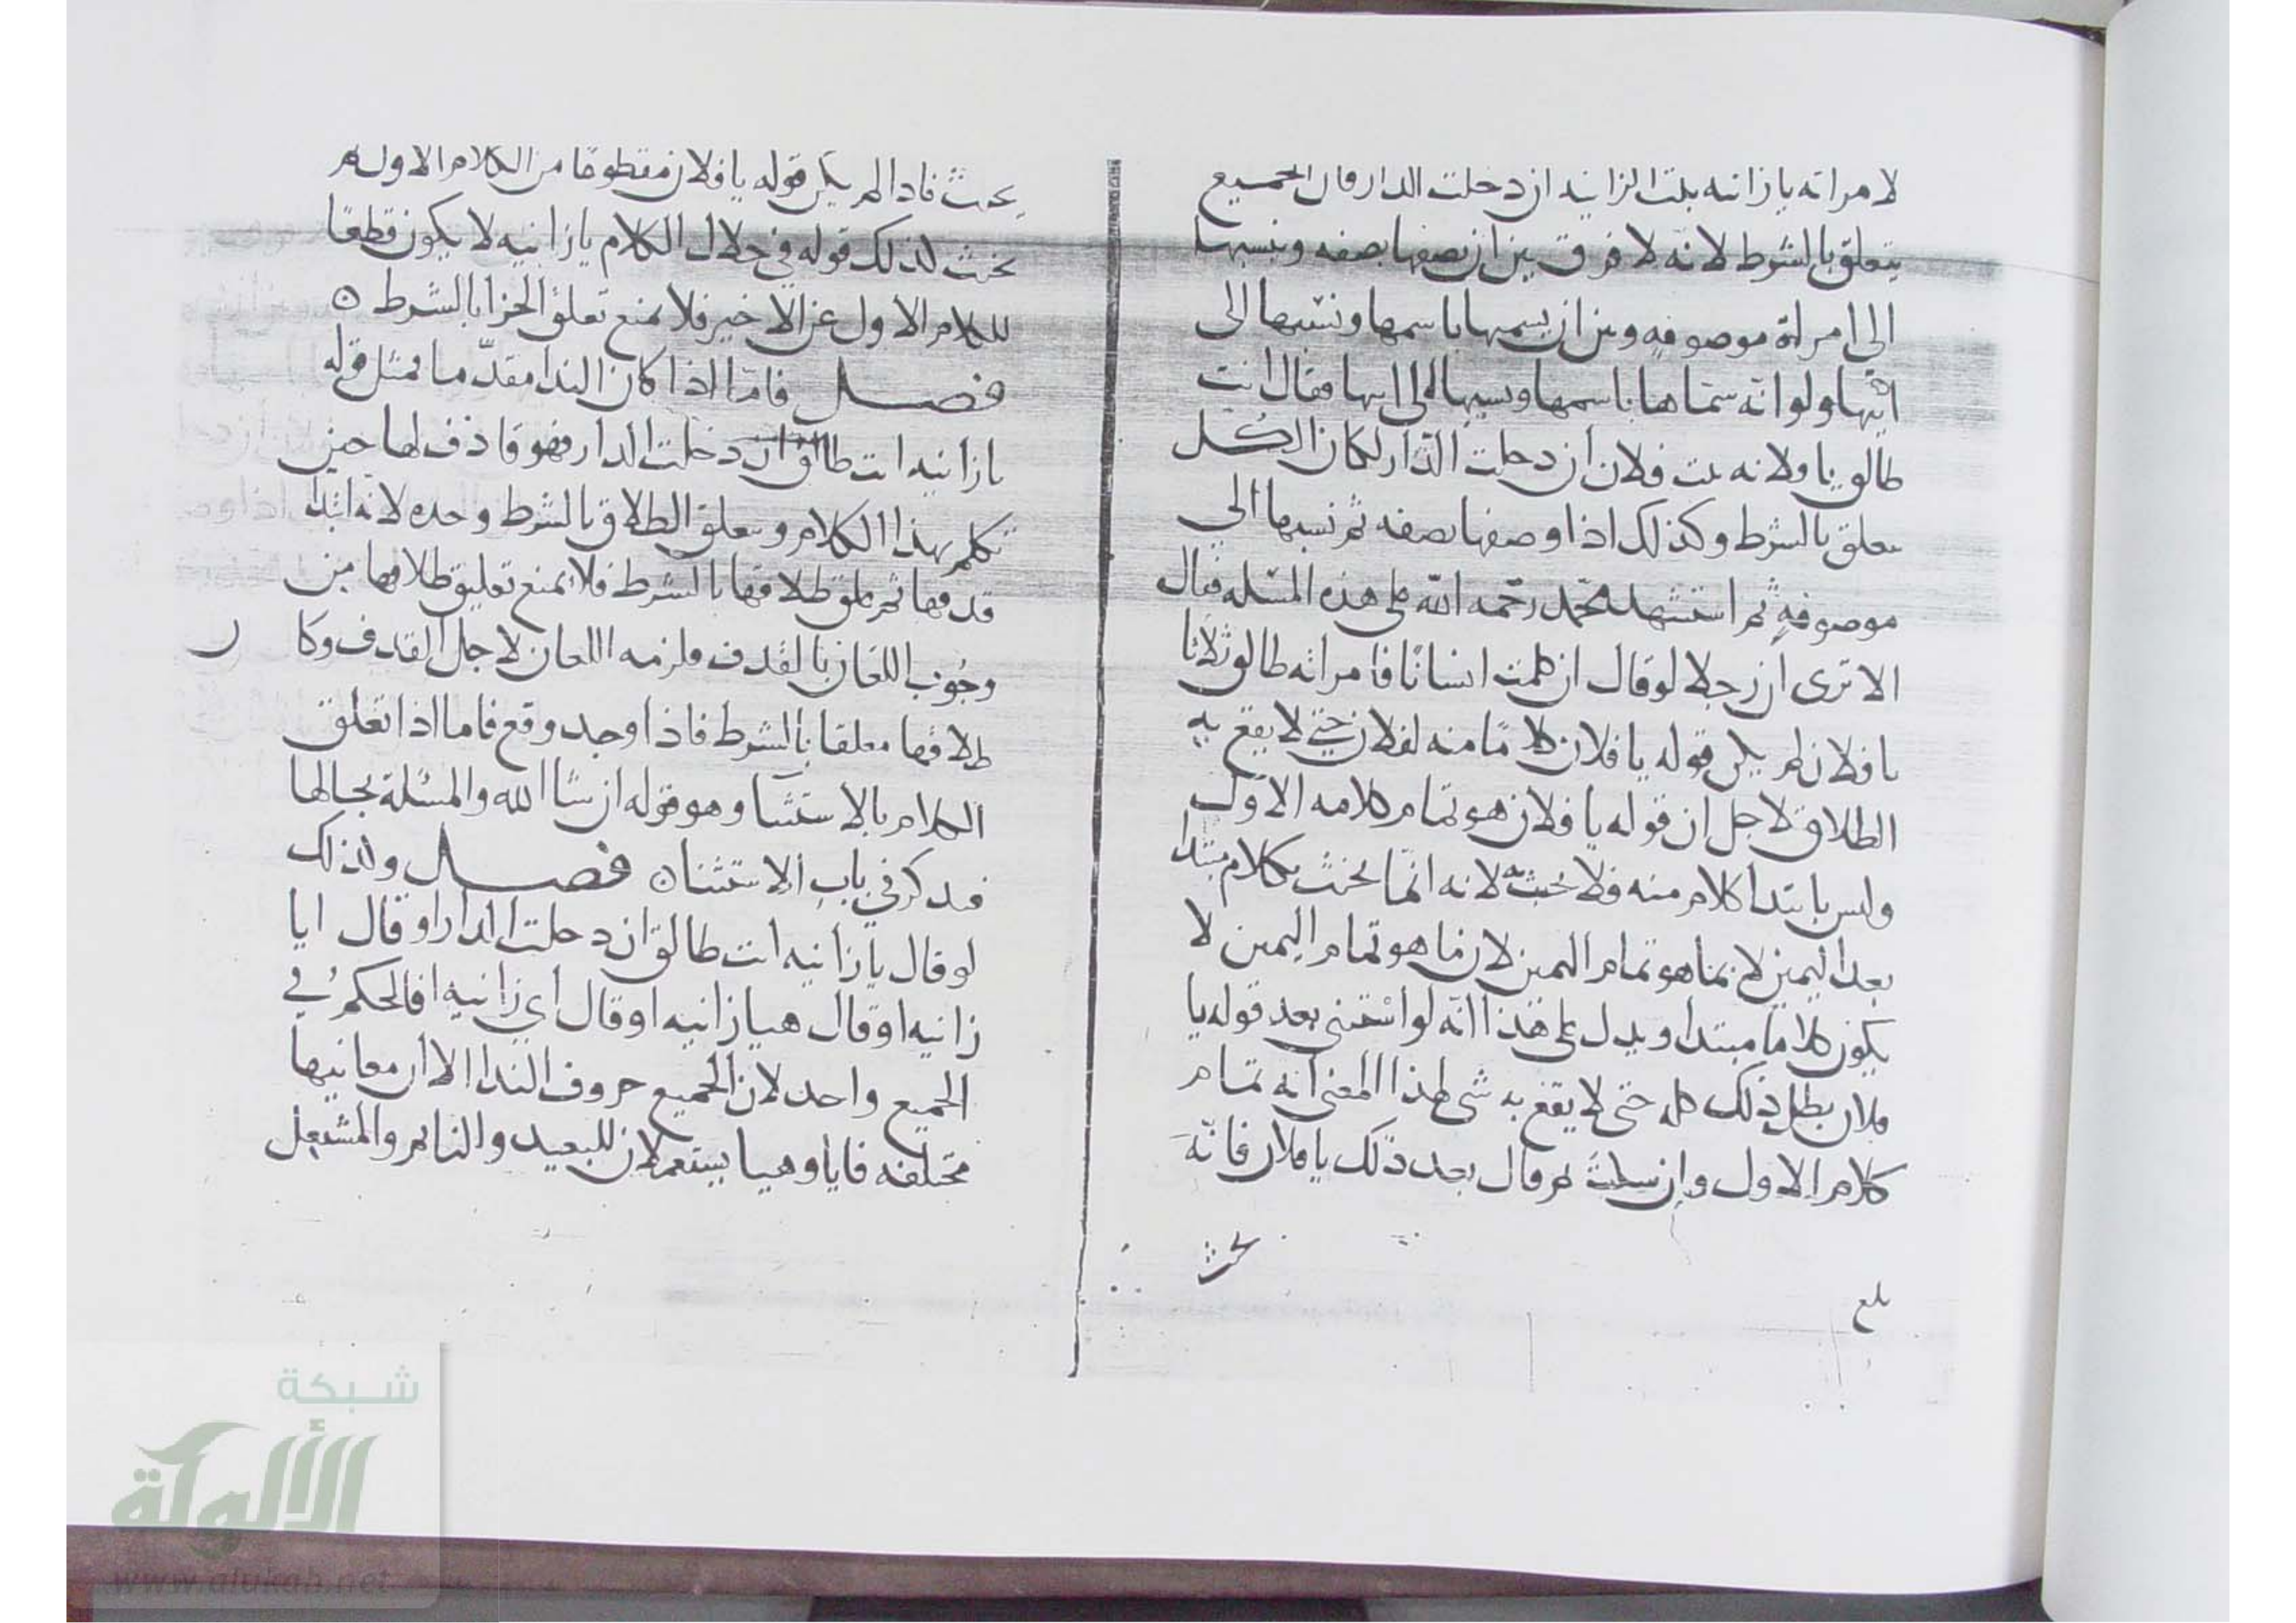 لامراته يا زانيه بنت الزانيه ان دخلت الدار فان الجميع
يتعلق بالشرط لانه لا فرق بين ان يصفها بصفه وينسبها
الى امراة موصوفه وبين ان يسميها باسمها وينسبها الى
ابيها ولو انه سماها باسمها ونسبها الى ابيها فقال انت
طالق يا ولانه بنت فلان ان دخلت الدار لكان الكل
يتعلق بالشرط وكذلك اذا وصفها بصفه ثم نسبها الي
موصوفه ثم استشهد محمد رحمه الله على هذه المسله فقال
الا ترى ان رجلا لو قال ان كلمت انسانا فامراته طالق ثلاثا
يا فلان لم يكن قوله يا فلان كلاما منه لفلان حتى لا يقع به
الطلاق لاجل ان قوله يا فلان هو تمام كلامه الاول
وليس بابتدا كلام منه فلا يحنث لانه انما يحنث بكلام مبتدا
بعد اليمين لا بما هو تمام اليمين لان ما هو تمام اليمين لا
يكون كلاما مبتدا ويدل على هذا انه لو استثنى بعد قوله يا
فلان بطل ذلك كله حتى لا يقع به شي لهذا المعنى انه تمام
كلام الاول وان سكت ثم قال بعد ذلك يا فلان فانه
يحنث
بلغ
يحنث فاذا لم يكن قوله يا فلان مقطوعا من الكلام الاول لم
يحنث لذلك قوله في خلال الكلام يا زانيه لا يكون قطعا
للكلام الاول عن الاخير فلا يمنع تعلق الجزا بالشرط ه
فصل فاما اذا كان الندا مقدما مثل قوله
يا زانيه انت طالق ان دخلت الدار فهو قاذف لها حين
تكلم بهذا الكلام ويتعلق الطلاق بالشرط وحده لانه ابتدا
قذفها ثم علق طلاقها بالشرط فلا يمنع تعليق طلاقها من
وجوب اللعان بالقذف فلزمه اللعان لاجل القذف وكا
ن
طلاقها معلقا بالشرط فاذا وجد وقع فاما اذا تعلق
الكلام بالاستثنا وهو قوله ان شا الله والمسئلة بحالها
فيذكر في باب الاستثنا ه فصل وكذلك
لو قال يا زانيه انت طالق ان دخلت الدار او قال ايا
زانيه او قال هيا زانيه او قال اي زانيه فالحكم في
الجميع واحد لان الجميع حروف الندا الا ان معانيها
مختلفه فايا وهيا يستعملان للبعيد والنائم والمشتغل
شبكة
الألوكة
www.alukah.net